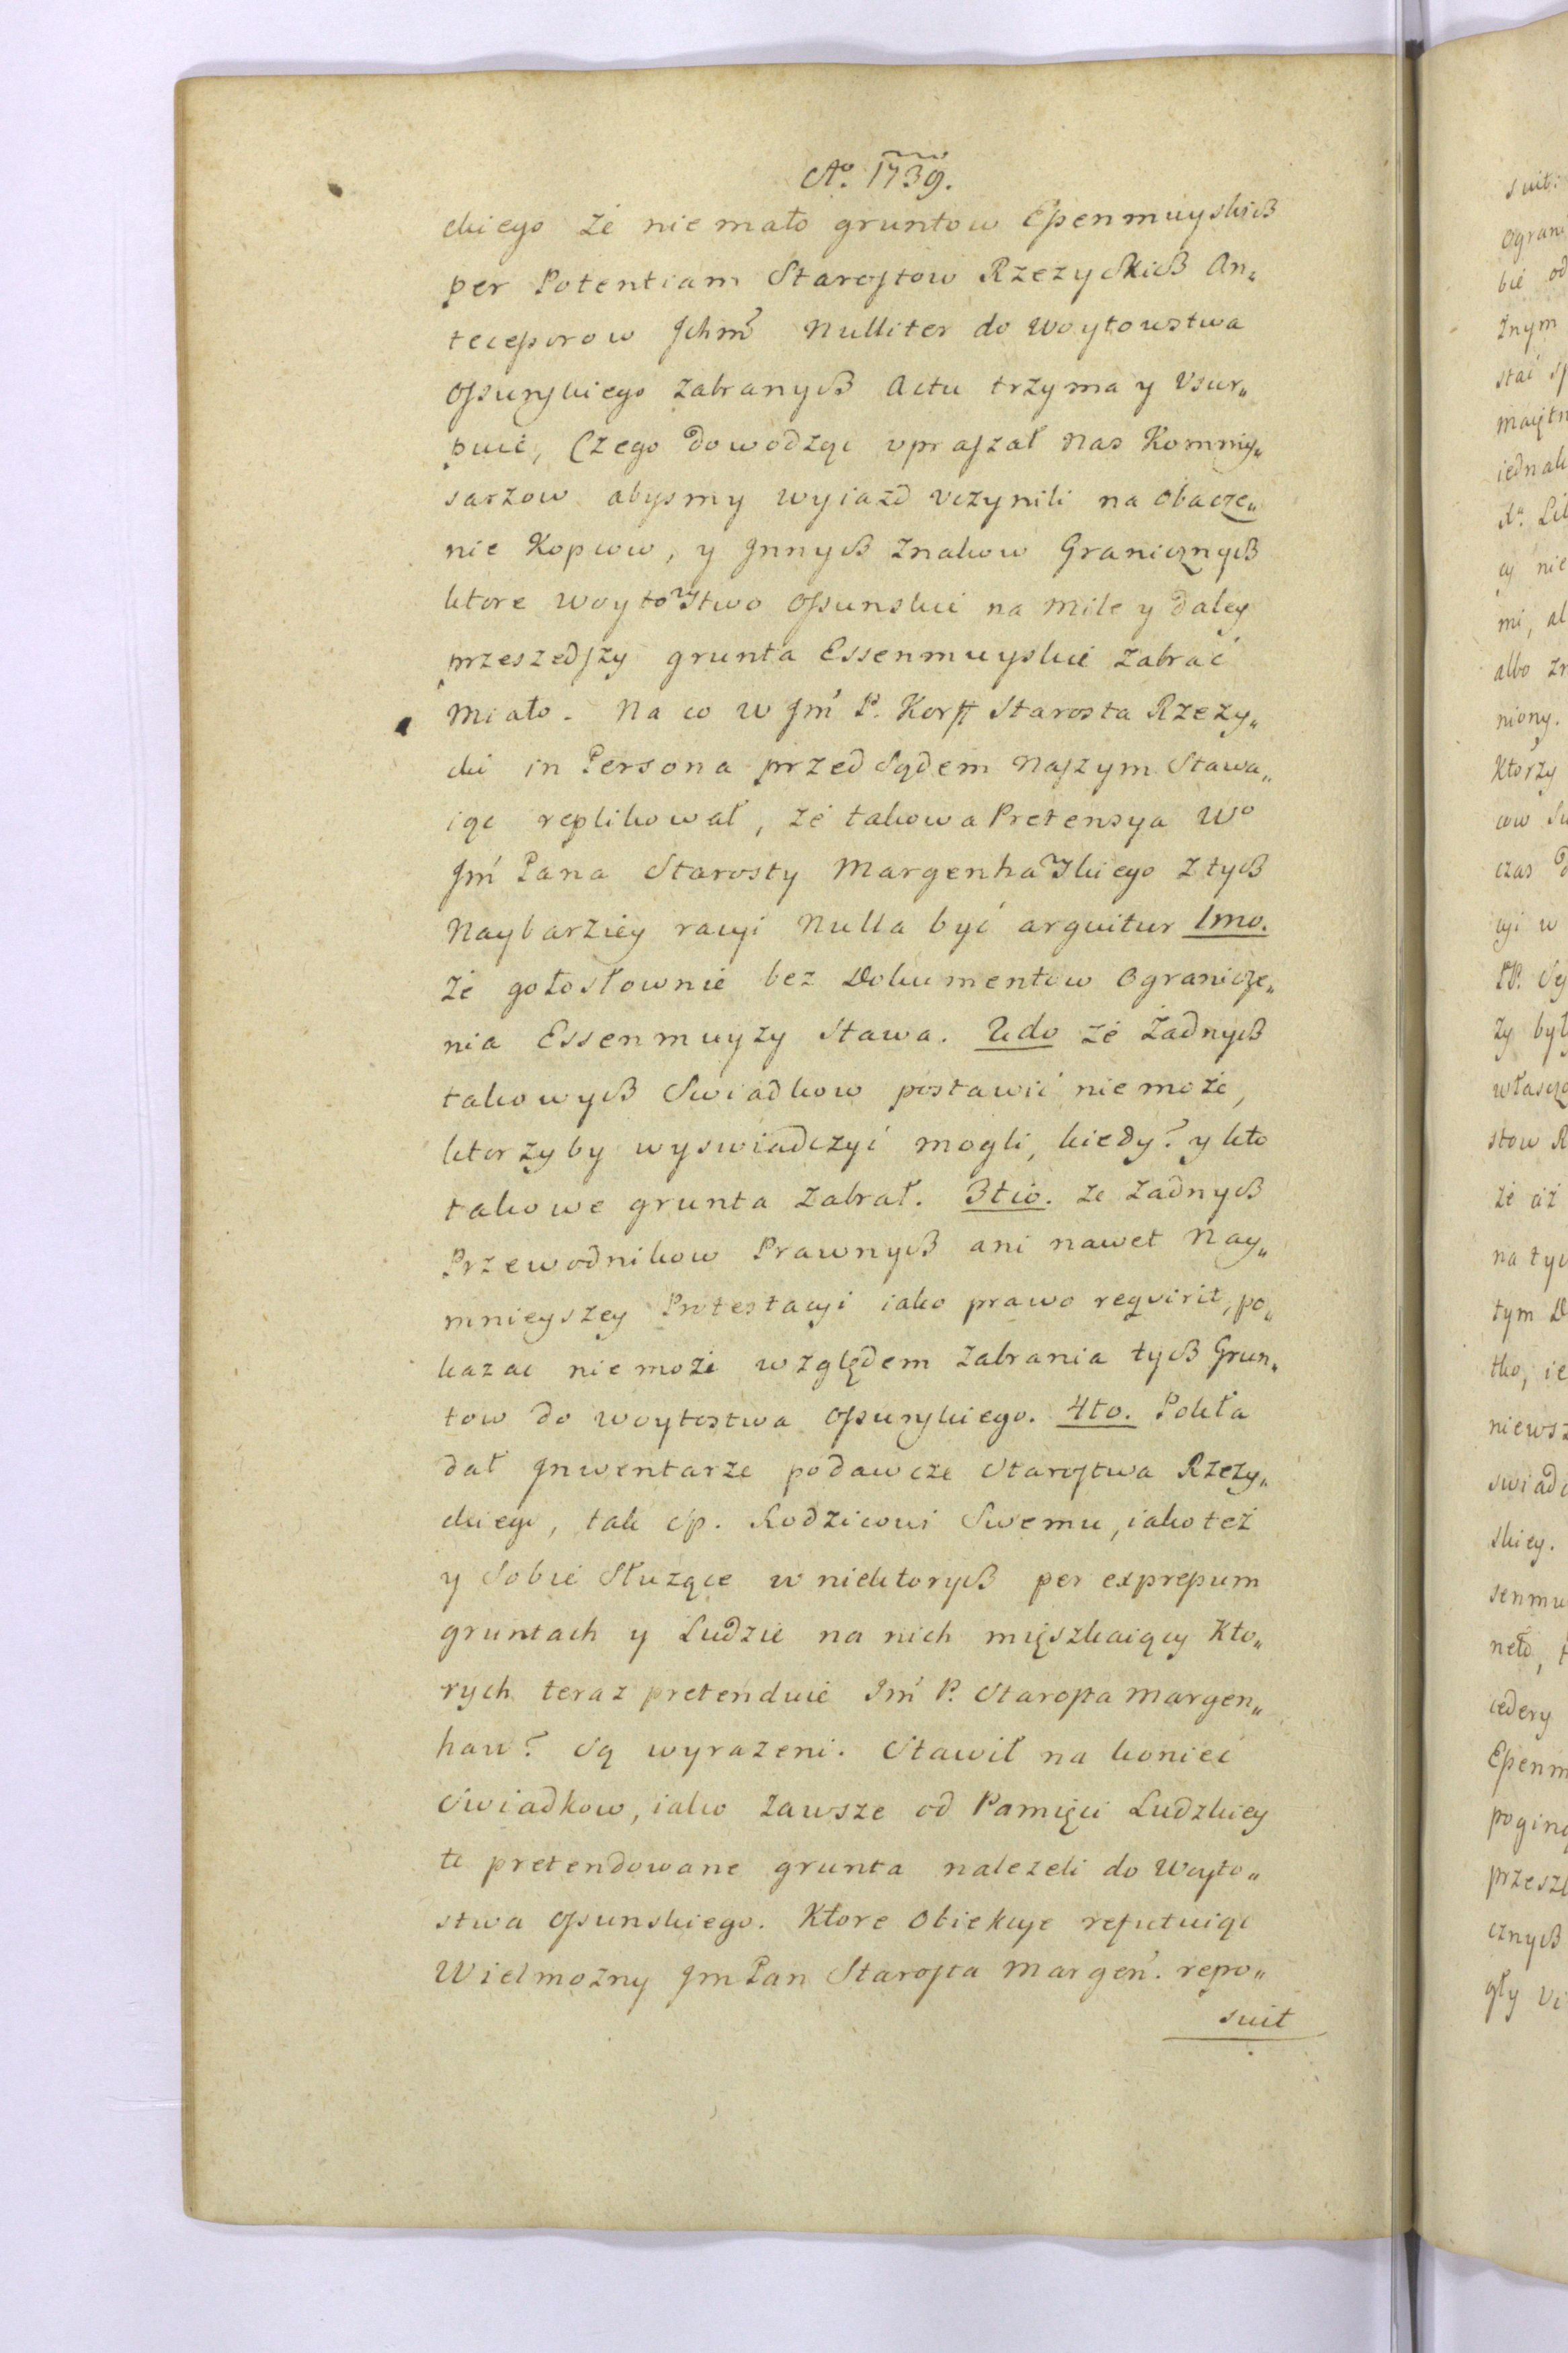 Ao. 1739.
ckiego że nie mało gruntow Essenmuyskich
per Potentiam Starostow Rzezyckich An„
tecessorow Jchmć Nulliter do Woytowstwa
Ossunskiego zabranych Actu trzyma y Vsur„
puie, Czego dowodząc vpraszał nas Kommis„
sarzow abysmy wyiazd vczynili na obacze„
nie Kopcow, y Jnnych znakow Granicznych
ktore Woytowstwo Ossunskie na Mile y daley
przeszedszy grunta Essenmuyskie zabrać
Miało. Na co W Jm P. Korff Starosta Rzezy„
cki in Persona przed Sądem Naszym Stawa„
iąc replikował, że takowa Pretensya Wo
Jm Pana Starosty Margenhawskiego z tych
Naybarziey racyi Nulla być arguitur 1mo.
że gołosłownie bez Dokumentow Ogranicze„
nia Essenmuyzy Stawa. 2do że żadnych
takowych Swiadkow postawić nie może,
ktorzyby wyswiadczyć mogli, kiedy? y kto
takowe grunta zabrał. 3tio. że żadnych
Przewodnikow Prawnych ani nawet Nay„
mnieyszey Protestacyi iako prawo requirit, po„
kazac nie może względem zabrania tych Grun„
tow do Woytostwa Ossunskiego. 4to. Pokła
dał Jnwentarze podawcze Starostwa Rzezy„
ckiego, tak sp. Rodzicowi Swemu, iako też
y Sobie Służące w niektorych per expressum
gruntach y Ludzie na nich mięszkaiący Kto„
rych teraz pretenduie Jm P. Starosta Margen„
haw? są wyrazeni. Stawił na koniec
Swiadkow, iako zawsze od Pamięci Ludzkiey
te pretendowane grunta nalezeli do Woyto„
stwa Ossunskiego. Ktore Obiekcye refutuiąc
Wielmożny Jm Pan Starosta Margen. repo„
suit